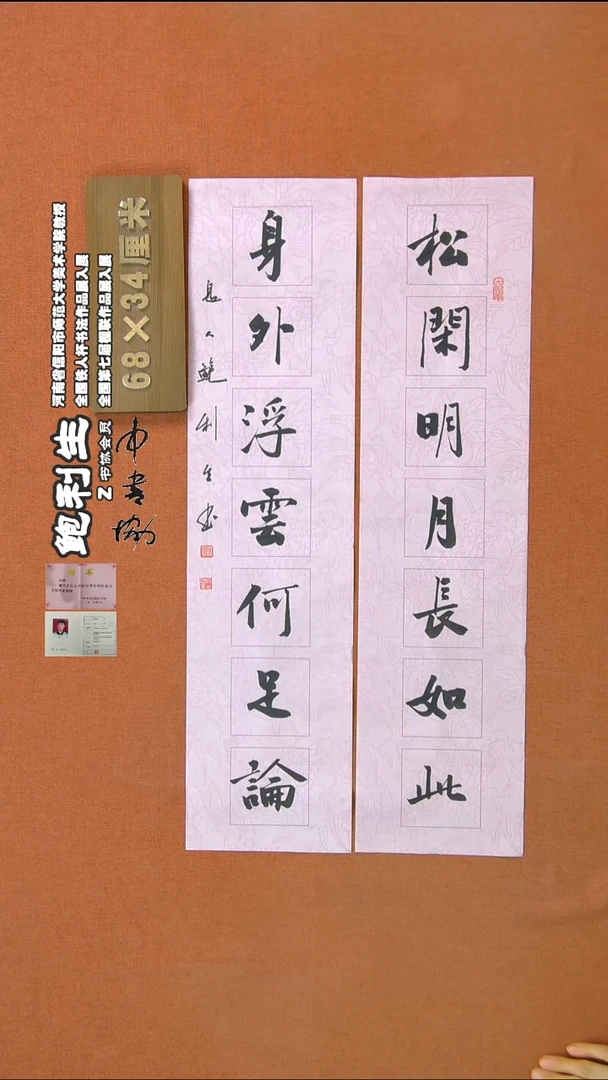 松閑明月長如此
身外浮雲何足論
息人鲍利生书
68×34厘米
河南省信阳市师范大学美术学院教授
全国铁人杯书法作品展入展
全国第七届楹联作品展入展
鲍利生
Z 书协会员
中书协